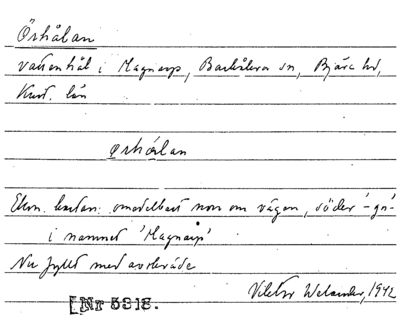 Örhålan
vattenhål i Magnarp, Barkåkra sn, Bjäre hd,
Krist. län
ørhålan
Ekon. kartan: omedelbart norr om vägen, söder '-gn-'
i namnet 'Magnarp'
Nu fyllt med avskräde
Viktor Welander, 1942
[Nr 5318.